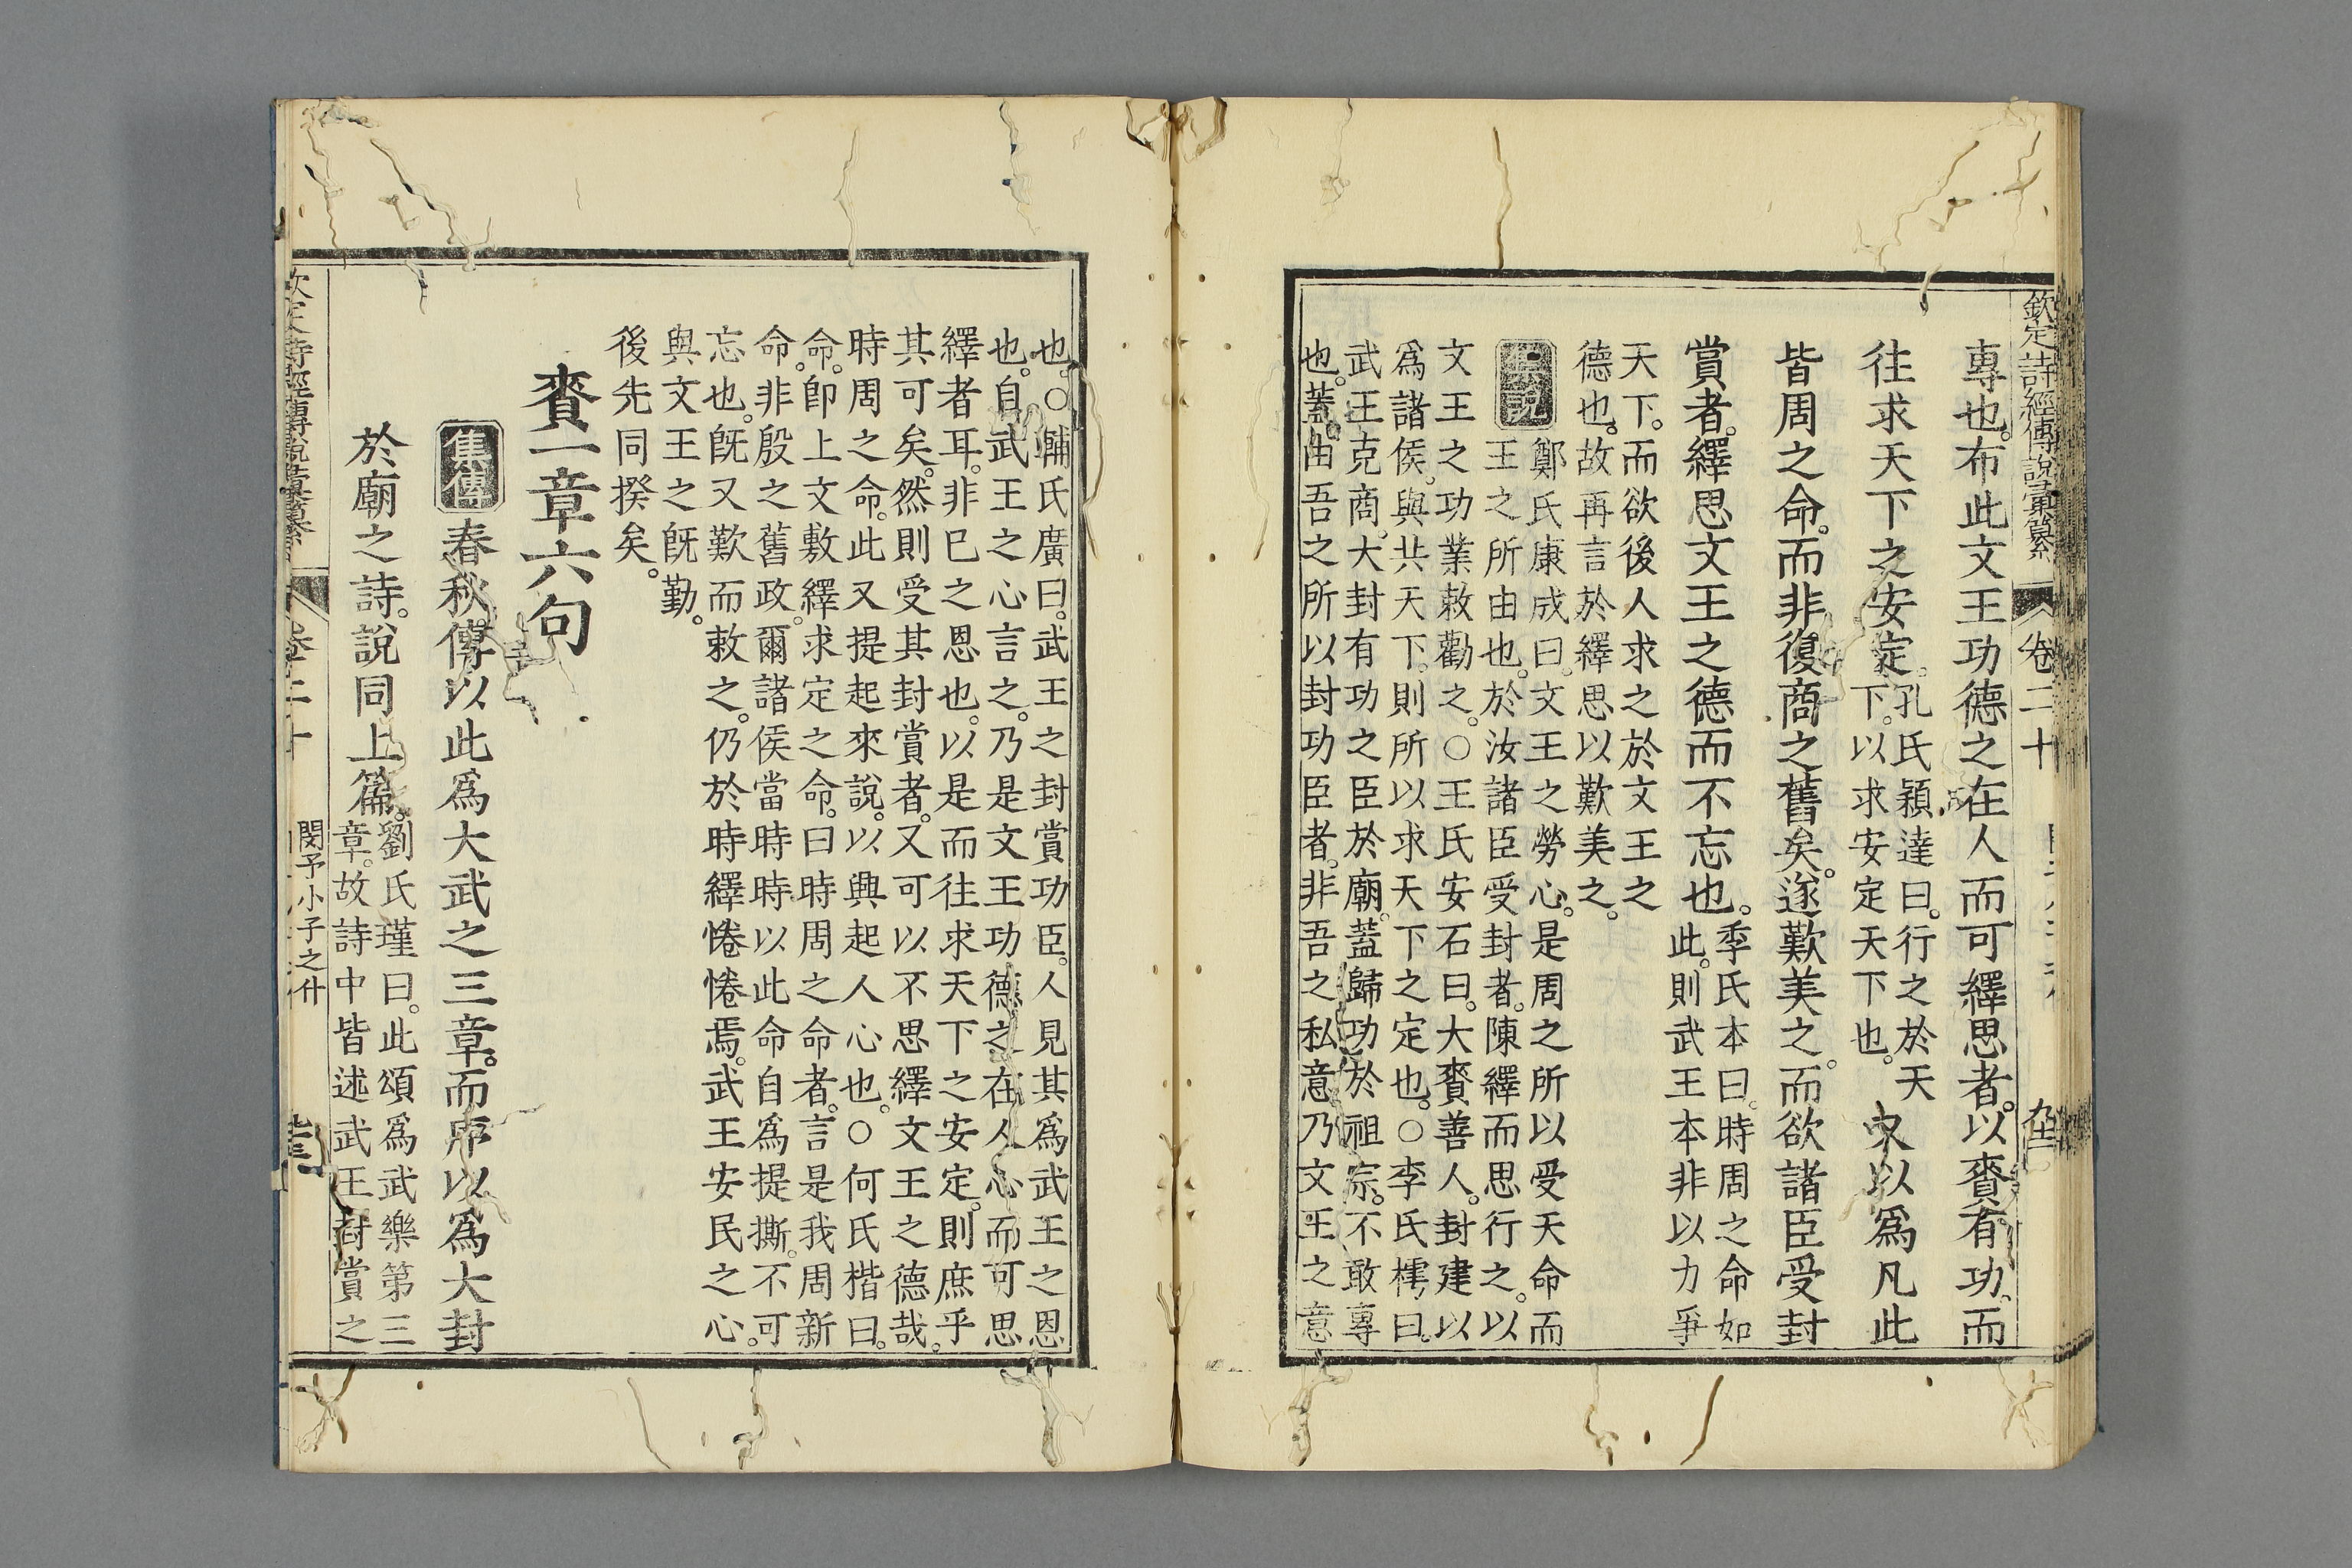 欽定詩經傳說彙纂 卷二十
專也。布此文王功德之在人而可繹思者。以賚有功。而
往求天下之安定。孔氏穎達曰。行之於天下。以求安定天下也。又以爲凡此
皆周之命。而非復商之舊矣。遂歎美之。而欲諸臣受封
賞者。繹思文王之德而不忘也。季氏本曰。時周之命如此。則武王本非以力爭
天下。而欲後人求之於文王之
德也。故再言於繹思以歎美之。
集說 鄭氏康成曰。文王之勞心。是周之所以受天命而
王之所由也。於汝諸臣受封者。陳繹而思行之。以
文王之功業敕勸之。○王氏安石曰。大賚善人。封建以
爲諸侯。與共天下。則所以求天下之定也。○李氏樗曰。
武王克商。大封有功之臣於廟。蓋歸功於祖宗。不敢專
也。蓋曰由吾之所以封功臣者。非吾之私意乃文王之意
也。○輔氏廣曰。武王之封賞功臣。人見其爲武王之恩
也。自武王之心言之。乃是文王功德之在人心而可思
繹者耳。非已之恩也。以是而往求天下之安定。則庶乎
其可矣。然則受其封賞者。又可以不思繹文王之德哉。
時周之命。此又提起來說。以興起人心也。○何氏楷曰。
命。卽上文敷繹求定之命。曰時周之命者。言是我周新
命。非殷之舊政。爾諸侯當時時以此命自爲提撕。不可
忘也。旣又歎而敕之。仍於時繹惓惓焉。武王安民之心。
與文王之旣勤。
後先同揆矣。
賚一章六句
集傳 春秋傳以此爲大武之三章。而序以爲大封
於廟之詩。說同上篇。劉氏瑾曰。此頌爲武樂第三章。故詩中皆述武王封賞之
閔予小子之什